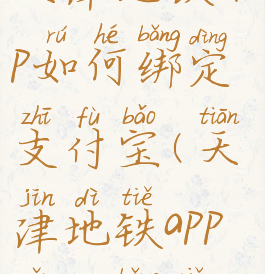 rú hé bǎng dìng
P如何绑定
zhī fù bǎo tiān
支付宝(天
jīn dì tiě
津地铁app